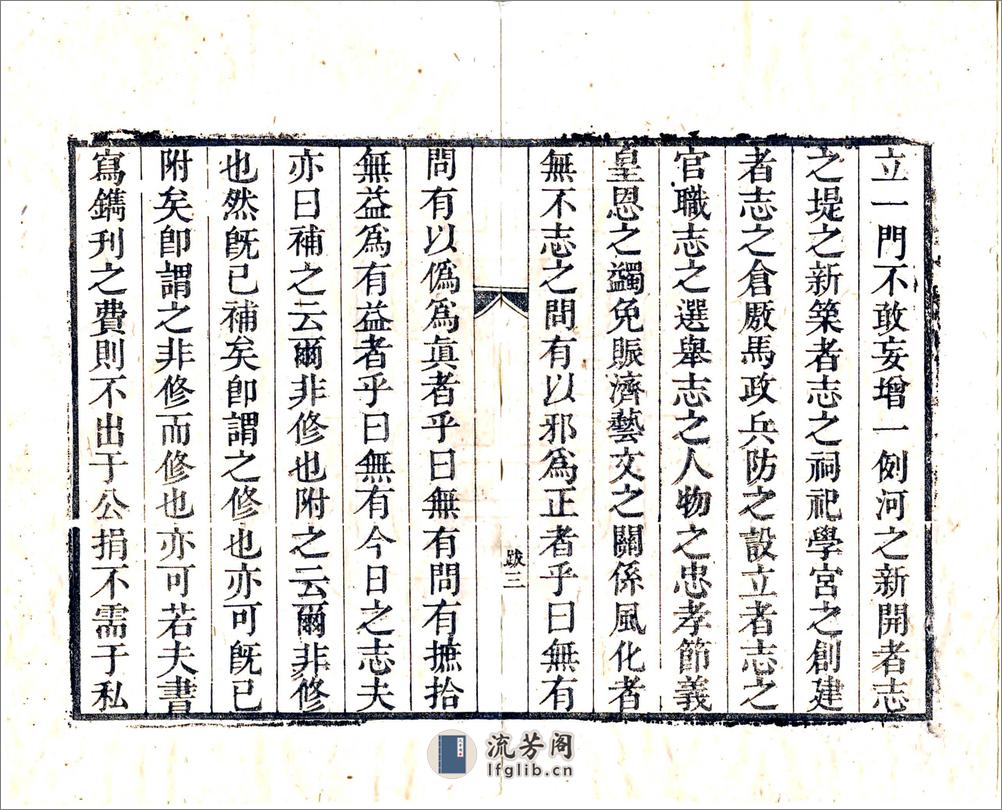 立一門不敢妄增一例河之新開者志
之堤之新築者志之祠祀學宮之創建
者志之倉厫馬政兵防之設立者志之
官職志之選舉志之人物之忠孝節義
皇恩之蠲免賑濟藝文之關係風化者
無不志之問有以邪爲正者乎曰無有
跋三
問有以僞爲眞者乎曰無有問有摭拾
無益爲有益者乎曰無有今日之志夫
亦曰補之云爾非修也附之云爾非修
也然旣已補矣卽謂之修也亦可旣已
附矣卽謂之非修而修也亦可若夫書
寫鐫刊之費則不出于公捐不需于私
流芳阁
lfglib.cn